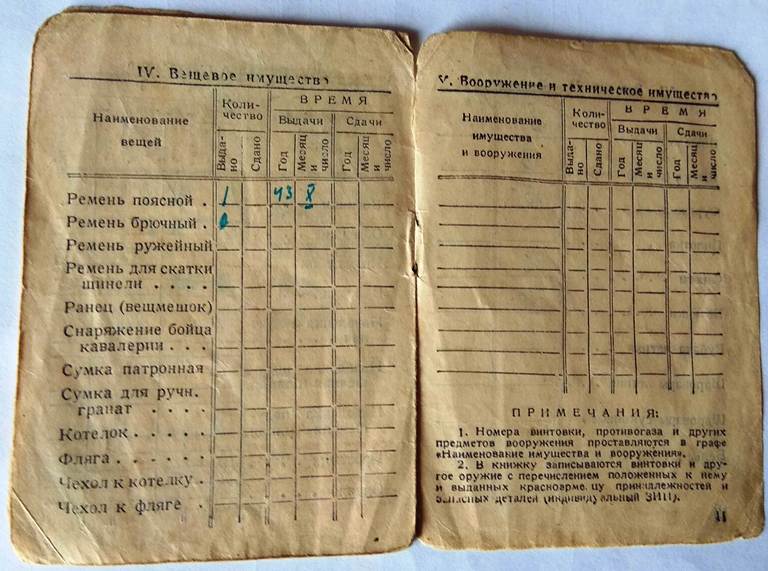 IV. Вещевое имущество
Наименование
вещей
Коли-
чество
ВРЕМЯ
Выдачи
Сдачи
Выда-
но
Сдано
Год
Месяц
и
число
Год
Месяц
и
число
Ремень поясной . 1 43 X
Ремень брючный .
Ремень ружейный
Ремень для скатки
шинели . . . .
Ранец (вещмешок)
Снаряжение бойца
кавалерии . . .
Сумка патронная
Сумка для ручн.
гранат . . . .
Котелок . . . . .
Фляга . . . . . .
Чехол к котелку .
Чехол к фляге .
V. Вооружение и техническое имущество
Наименование
имущества
и вооружения
Коли-
чество
ВРЕМЯ
Выдачи
Сдачи
Выда-
но
Сдано
Год
Месяц
и
число
Год
Месяц
и число
ПРИМЕЧАНИЯ:
1. Номера винтовки, противогаза и других
предметов вооружения проставляются в графе
«Наименование имущества и вооружения».
2. В книжку записываются винтовки и дру-
гое оружие с перечислением положенных к нему
и выданных красноармейцу принадлежностей и
запасных деталей (индивидуальный ЗИП).
11